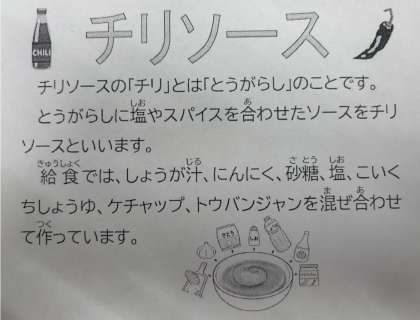 CHILI
チリソース
チリソースの「チリ」とは「とうがらし」のことです。
とうがらしに塩やスパイスを合わせたソースをチリ
ソースといいます。
給食では、しょうが汁、にんにく、砂糖、塩、こいく
ちしょうゆ、ケチャップ、トウバンジャンを混ぜ合わせ
て作っています。
さとう